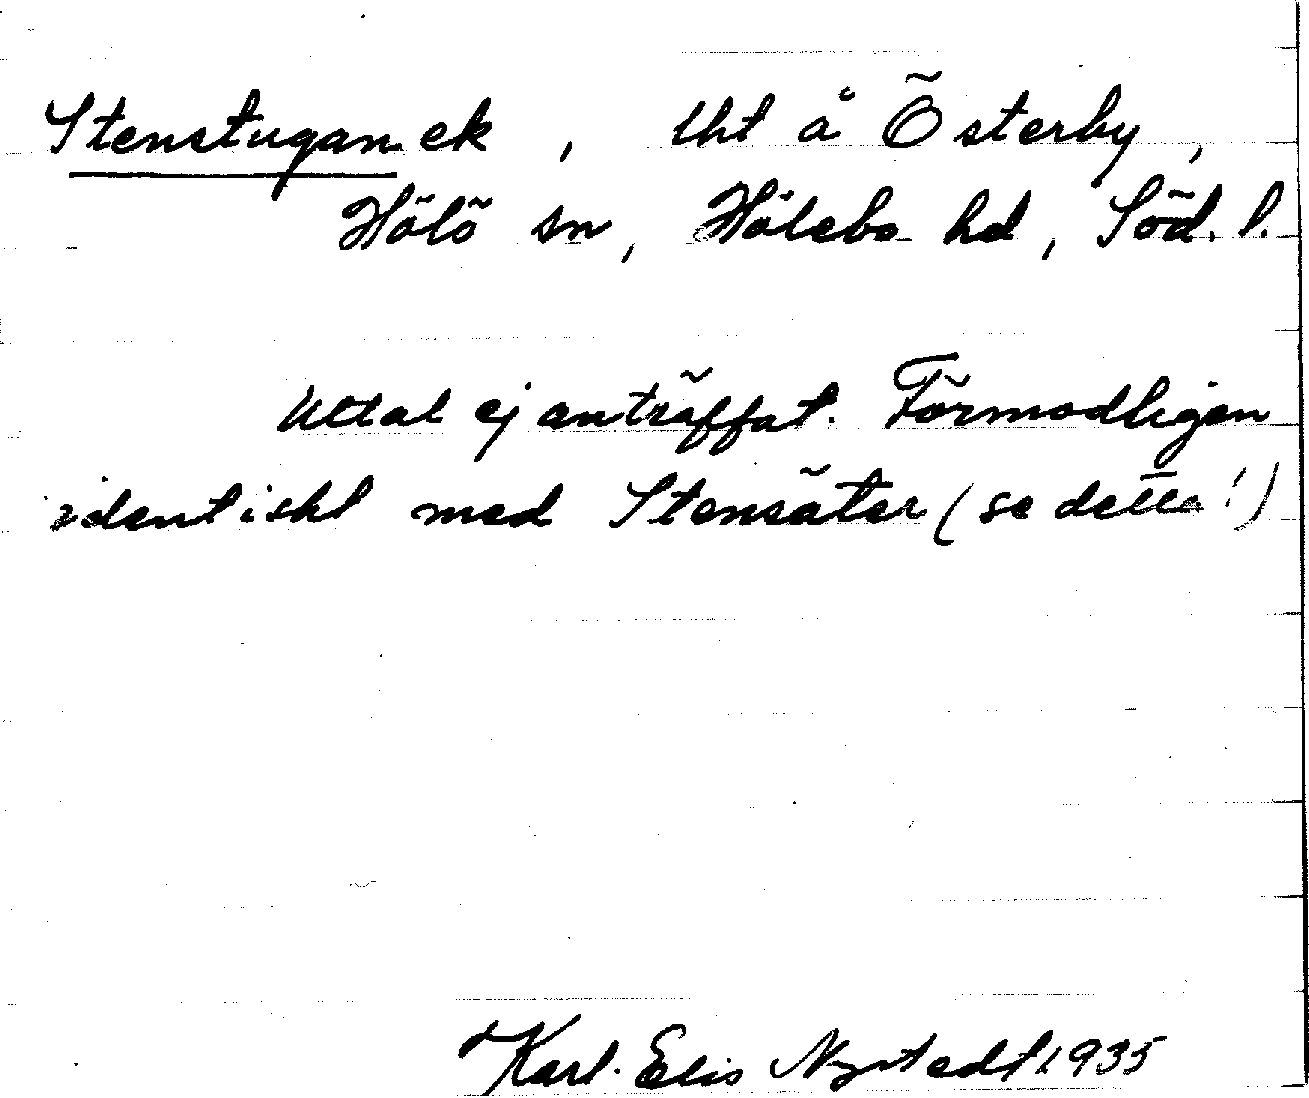 Stenstugan ek, tht å Österby,
Hölö sn, Hölebo hd, Söd. l.
Uttal ej anträffat. Förmodligen
identiskt med Stensäter (se detta!)
Karl-Elis Nystedt 1935